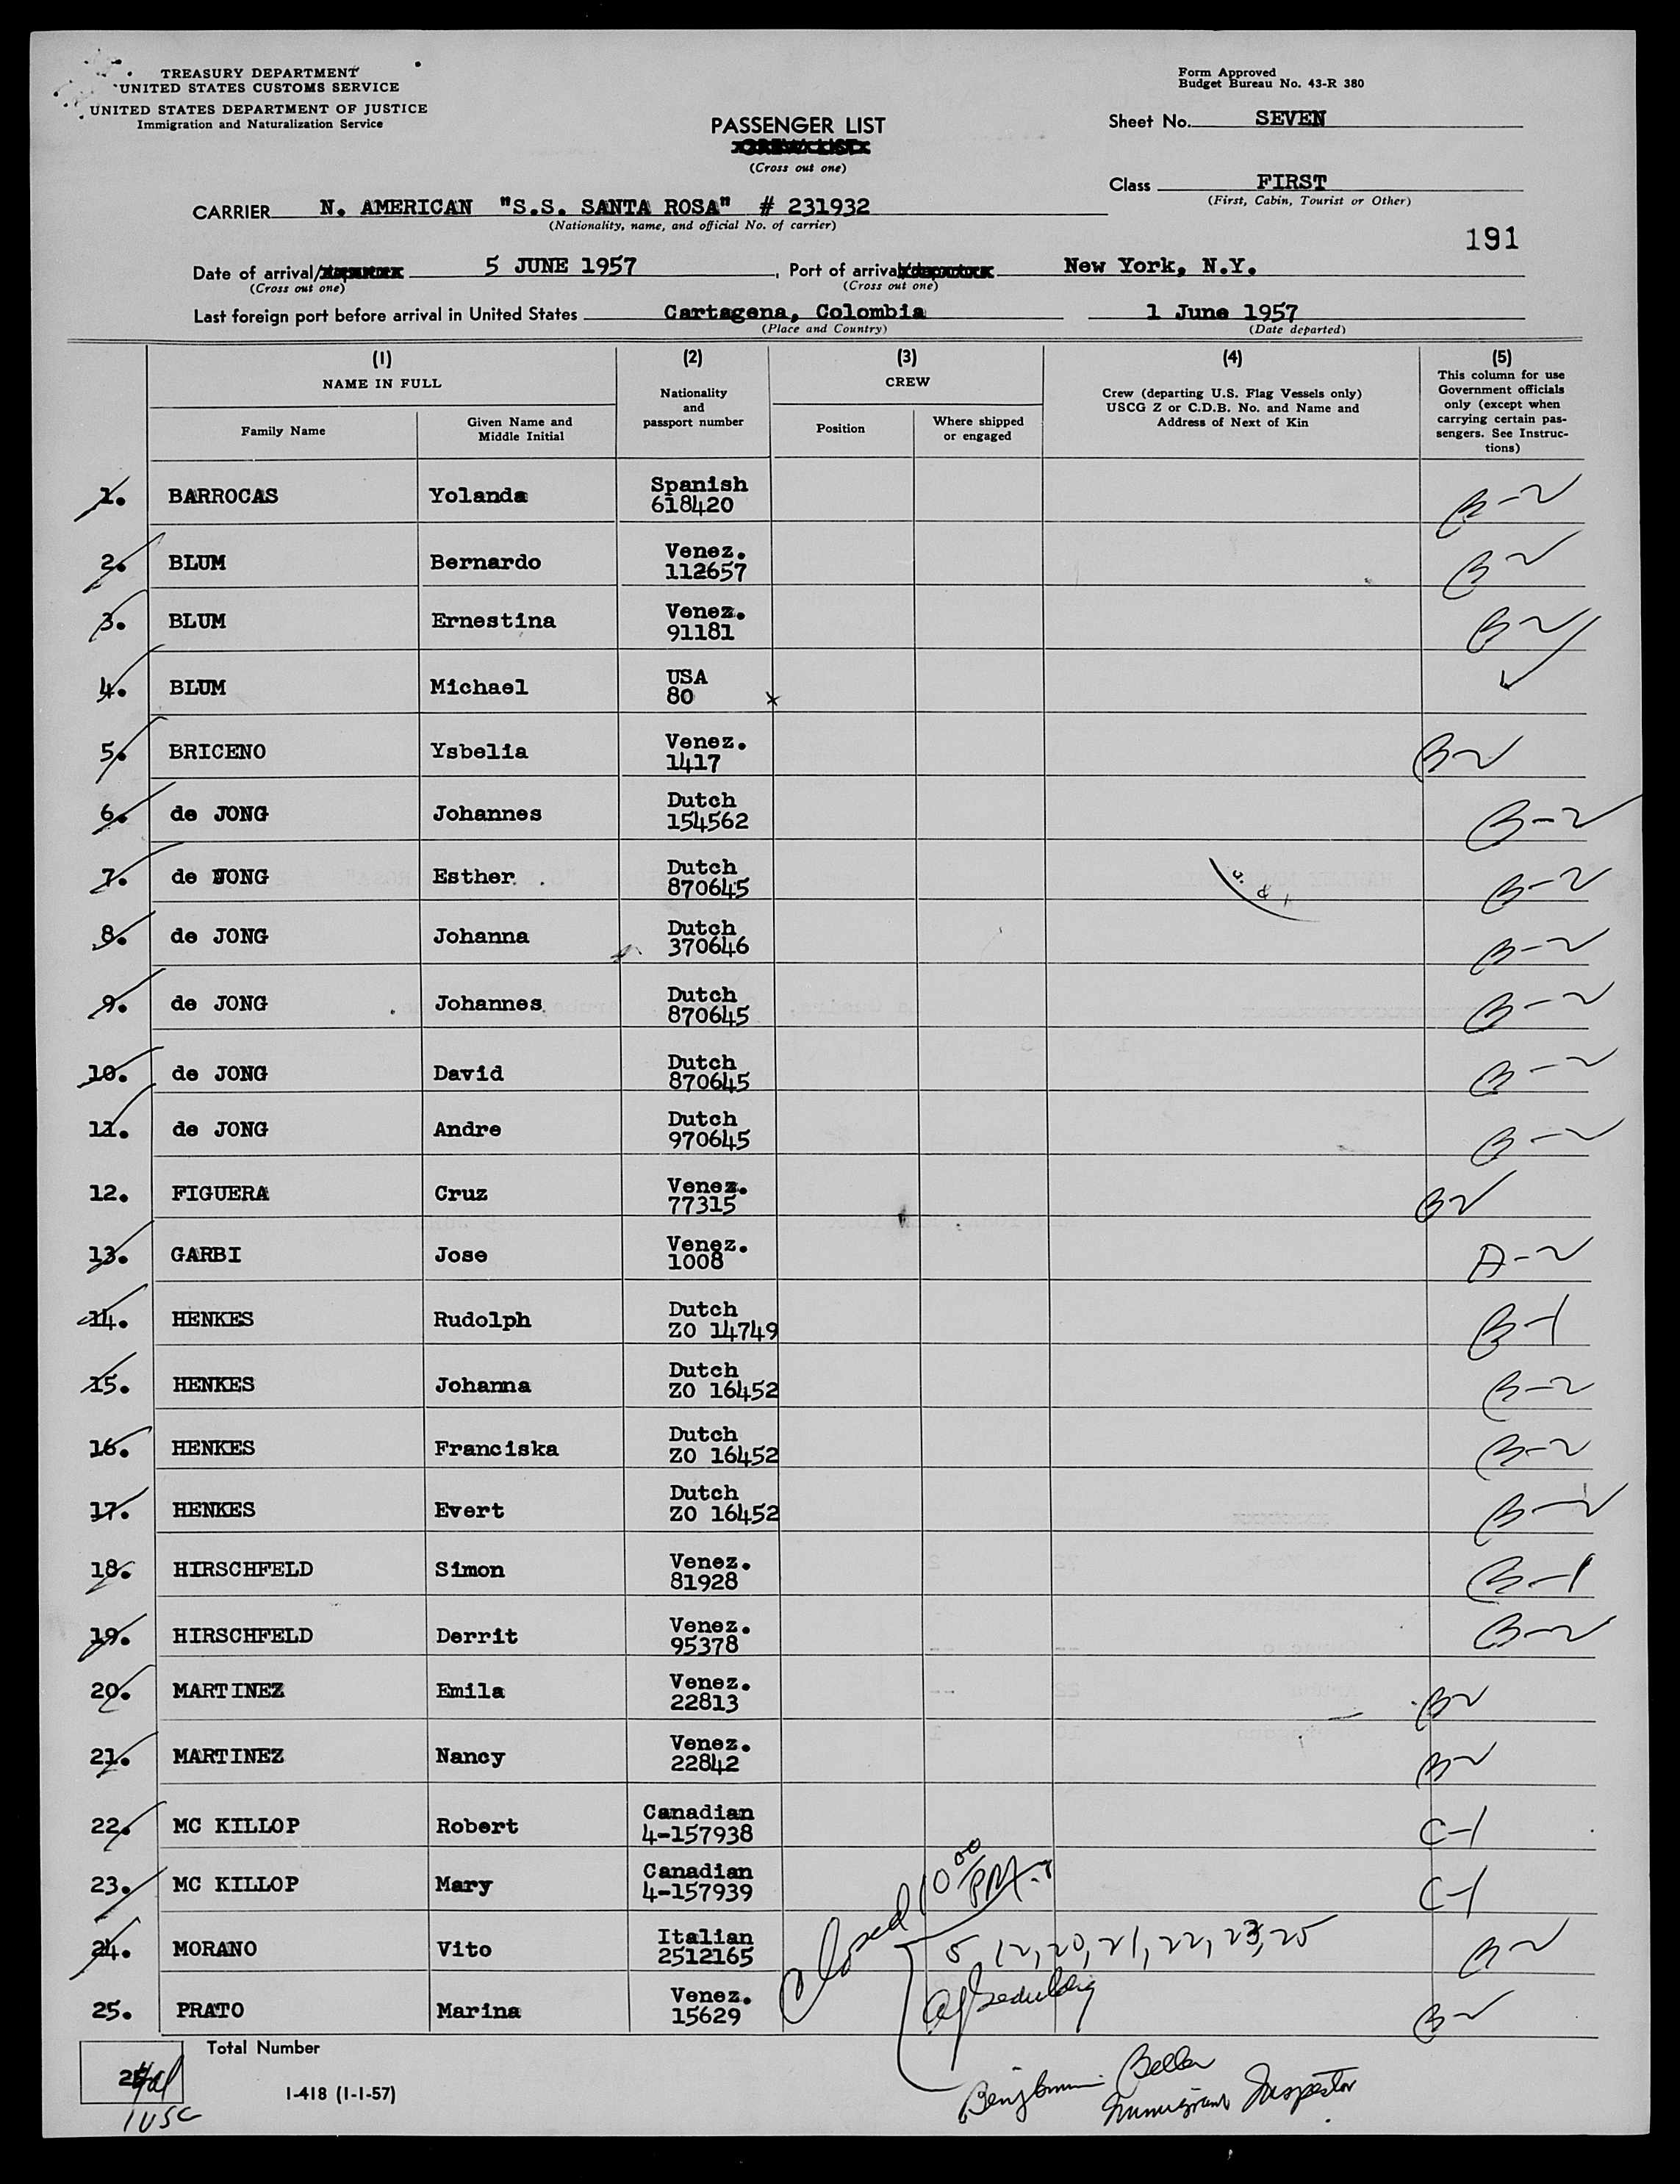 TREASURY DEPARTMENT
UNITED STATES CUSTOMS SERVICE
UNITED STATES DEPARTMENT OF JUSTICE
Immigration and Naturalization Service
Form Approved
Budget Bureau No. 43-R 380
PASSENGER LIST
CREW LIST
(Cross out one)
Sheet No. SEVEN
Class FIRST
(First, Cabin, Tourist or Other)
CARRIER N. AMERICAN "S.S. SANTA ROSA" # 231932
(Nationality, name, and official No. of carrier)
191
Date of arrival/ 5 JUNE 1957, Port of arrival New York, N.Y.
(Cross out one) (Cross out one)
Last foreign port before arrival in United States Cartagena, Colombia 1 June 1957
(Place and Country) (Date departed)
(1) (2) (3) (4) (5)
NAME IN FULL
Family Name
Given Name and
Middle Initial
Nationality
and
passport number
CREW
Position
Where shipped
or engaged
Crew (departing U.S. Flag Vessels only)
USCG Z or C.D.B. No. and Name and
Address of Next of Kin
This column for use
Government officials
only (except when
carrying certain pas-
sengers. See Instruc-
tions)
1. BARROCAS Yolanda Spanish 618420 B-2
2. BLUM Bernardo Venez. 112657 B2
3. BLUM Ernestina Venez. 91181 B2
4. BLUM Michael USA 80 x ✓
5. BRICENO Ysbelia Venez. 1417 B2
6. de JONG Johannes Dutch 154562 B-2
7. de JONG Esther Dutch 870645 B-2
8. de JONG Johanna Dutch 370646 B-2
9. de JONG Johannes Dutch 870645 B-2
10. de JONG David Dutch 870645 B-2
11. de JONG Andre Dutch 970645 B-2
12. FIGUERA Cruz Venez. 77315 B2
13. GARBI Jose Venez. 1008 A-2
14. HENKES Rudolph Dutch ZO 14749 B-1
15. HENKES Johanna Dutch ZO 16452 B-2
16. HENKES Franciska Dutch ZO 16452 B-2
17. HENKES Evert Dutch ZO 16452 B-2
18. HIRSCHFELD Simon Venez. 81928 B-1
19. HIRSCHFELD Derrit Venez. 95378 B-2
20. MARTINEZ Emila Venez. 22813 B2
21. MARTINEZ Nancy Venez. 22842 B2
22. MC KILLOP Robert Canadian 4-157938 C-1
23. MC KILLOP Mary Canadian 4-157939 C-1
24. MORANO Vito Italian 2512165 B2
25. PRATO Marina Venez. 15629 B2
Closed 10 00 PM
5 12, 20, 21, 22, 23, 25
Benjamin Beller
Immigrant Inspector
Total Number
1 USC
I-418 (1-1-57)